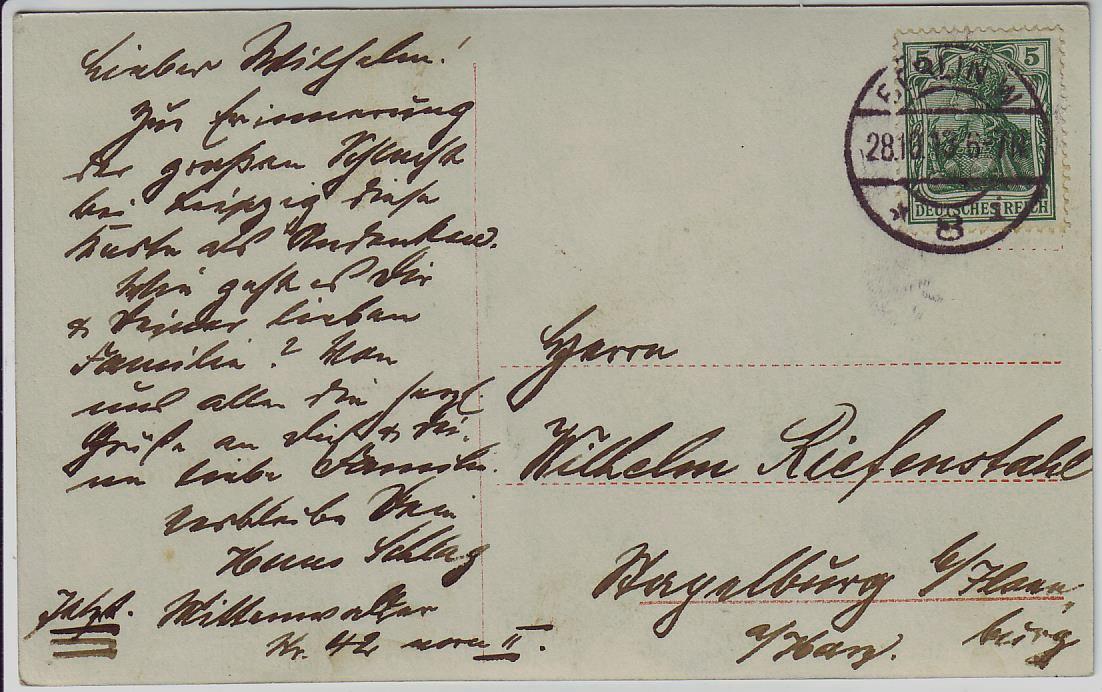 Lieber Wilhelm!
Zur Erinnerung
der großen Schlacht
bei Leipzig diese
Karte als Andenken.
Wie geht es Dir
& Deiner lieben
Familie? Von
uns allen die herzl.
Grüße an Dich & Dei-
ne liebe Familie.
verbleibe Dein
Hans Schlag
Wittenwalter
Nr. 42 vorn II.
5
5
BERLIN W
28.10.13.6-7N
DEUTSCHES REICH
* 8 i
Herrn
Wilhelm Riefenstahl
b/Ilsen-
burg
a/Harz.